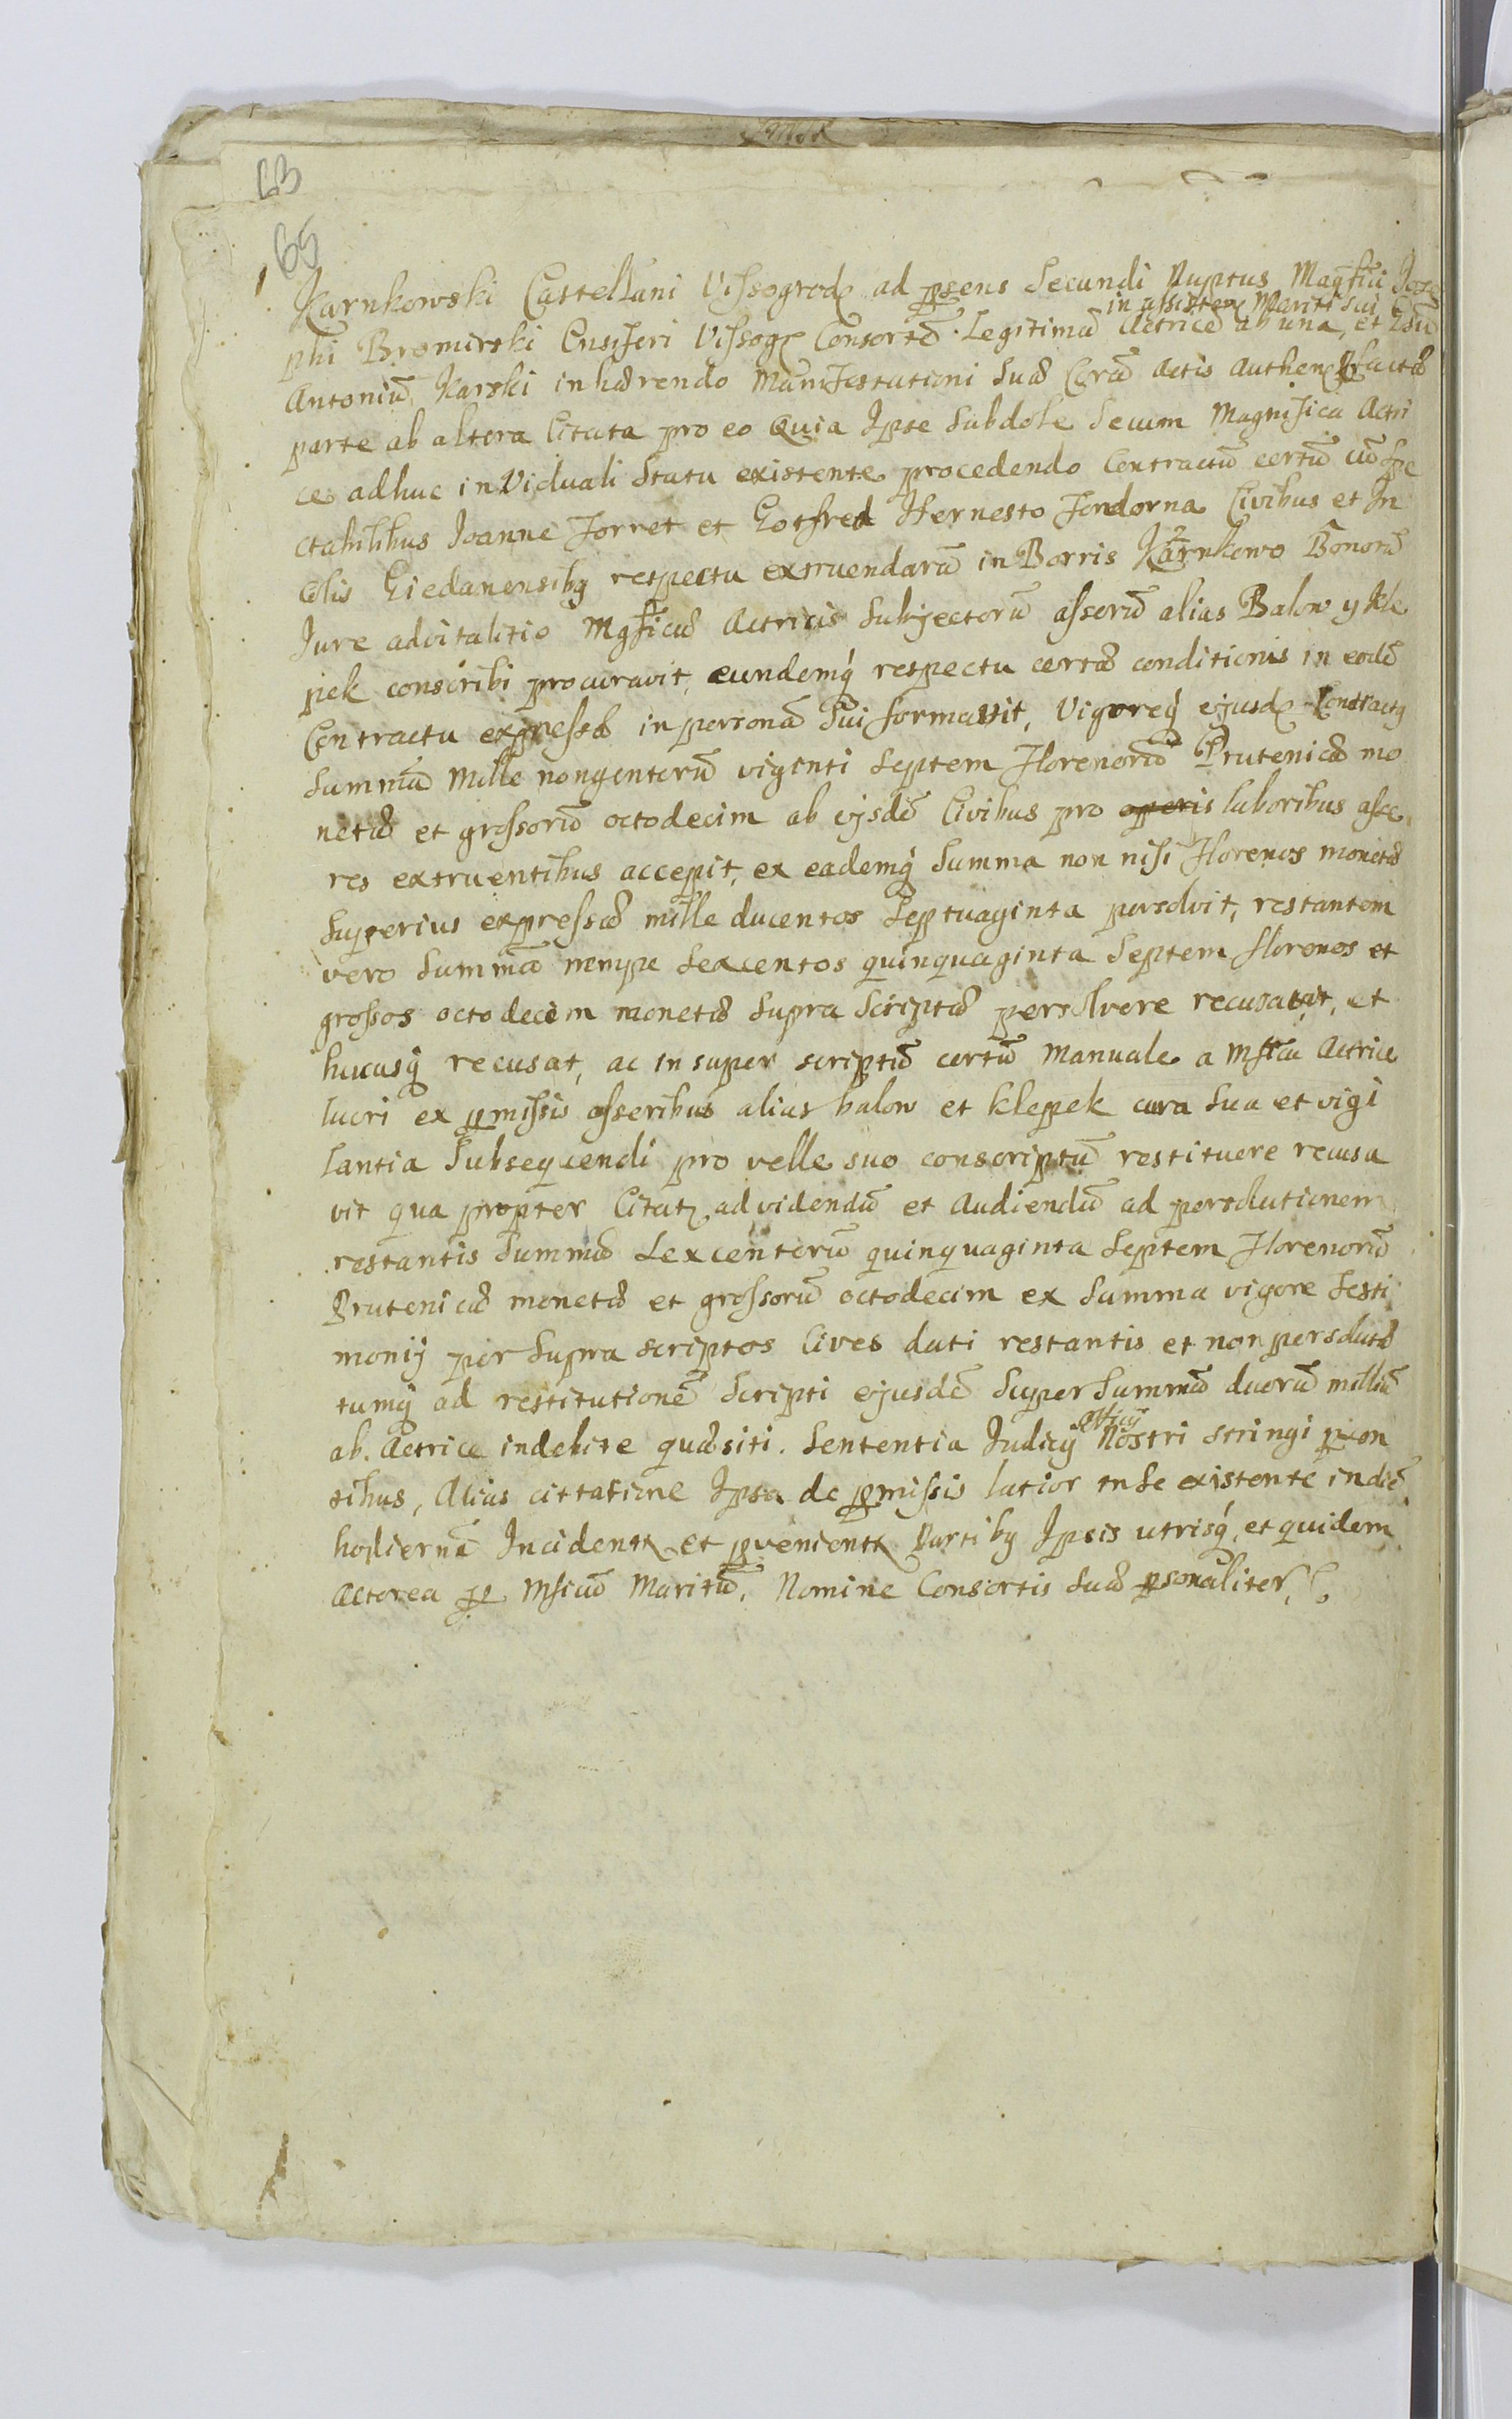 63
65
Karnkowski Castellani Vissogrod ad psens Secundi Nuptus Magfici Jose
in assisten Mariti sui
phi Bromirski Ensiferi Vissog Consortē Legitimā Actricē ab una, et Gsū
Antoniū Karski inhærendo Manifestationi Suæ Corā Actis Authen factæ
parte ab altera Citata pro eo Quia Ipse Subdole Secum Magnifica Actri
ce adhuc in Viduali Statu existente procedendo Contractū certū cū Spe
ctabilibus Joanne Forret et Gotfred Hernesto Fendorna Civibus et In
colis Giedanensibg respectu extruendarū in Borris Karnkowo Bonorū
Jure advitalitio Mgficæ Actricis Subjectorū asserū alias Balow y Kle
pek conscribi procuravit, eundemq̨ respectu certæ conditionis in eodē
Contractu expressæ in personā Sui formavit, Vigoreq̨ ejusd Contractg
Summā Mille nongentorū viginti Septem Florenorū Prutenicæ mo
netæ et grossorū octodecim ab ijsdē Civibus pro operis laboribus asse
res extruentibus accepit, ex eademq̨ Summa non nisi Florenos monetæ
Superius expressæ mille ducentos Septuaginta persolvit, restantem
vero Summā nempe Sexcentos quinquaginta Septem florenos et
grossos octodecim monetæ Supra Scriptæ persolvere recusavit, et
hucusq̨ recusat, ac insuper scriptū certū Manuale a Mfica Actrice
lucri ex pmissis asseribus alias balow et klepek cura Sua et vigi
lantia Subsequendi pro velle suo conscriptū restituere recusa
vit qua propter Citat ad videndū et Audiendū ad persolutionem
restantis Summæ Sexcentorū quinquaginta Septem Florenorū
Prutenicæ monetæ et grossorū octodecim ex Summa vigore Testi
monij per Supra scriptos Cives dati restantis et non persolutæ
tumq̨ ad restitutionē Scripti ejusdē Super Summā duorū milliū
ab Actrice indebite quæsiti. Sententia Judicij Nostri stringi pæn
Officij
tibus, Alias cittatione Ipsa de pmissis latior in se existente in diē
hodiernā Incident et pvenient Partibg Ipsis utrisq̨, et quidem
Actorea p Mficū Maritū, Nomine Consortis Suæ psonaliter,